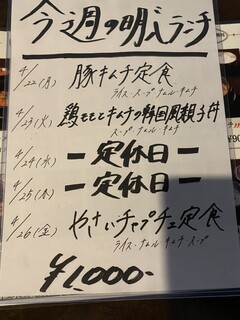 今週の明人ランチ
4/22(月) 豚キムチ定食
ライス・スープ・ナムル・キムチ
4/23(火) 鶏ももとキムチの韓国風親子丼
スープ・ナムル・キムチ
4/24(水) ー定休日ー
4/25(木) ー定休日ー
4/26(金) やさいチャプチェ定食
ライス・ナムル・キムチ・スープ
¥1,000-